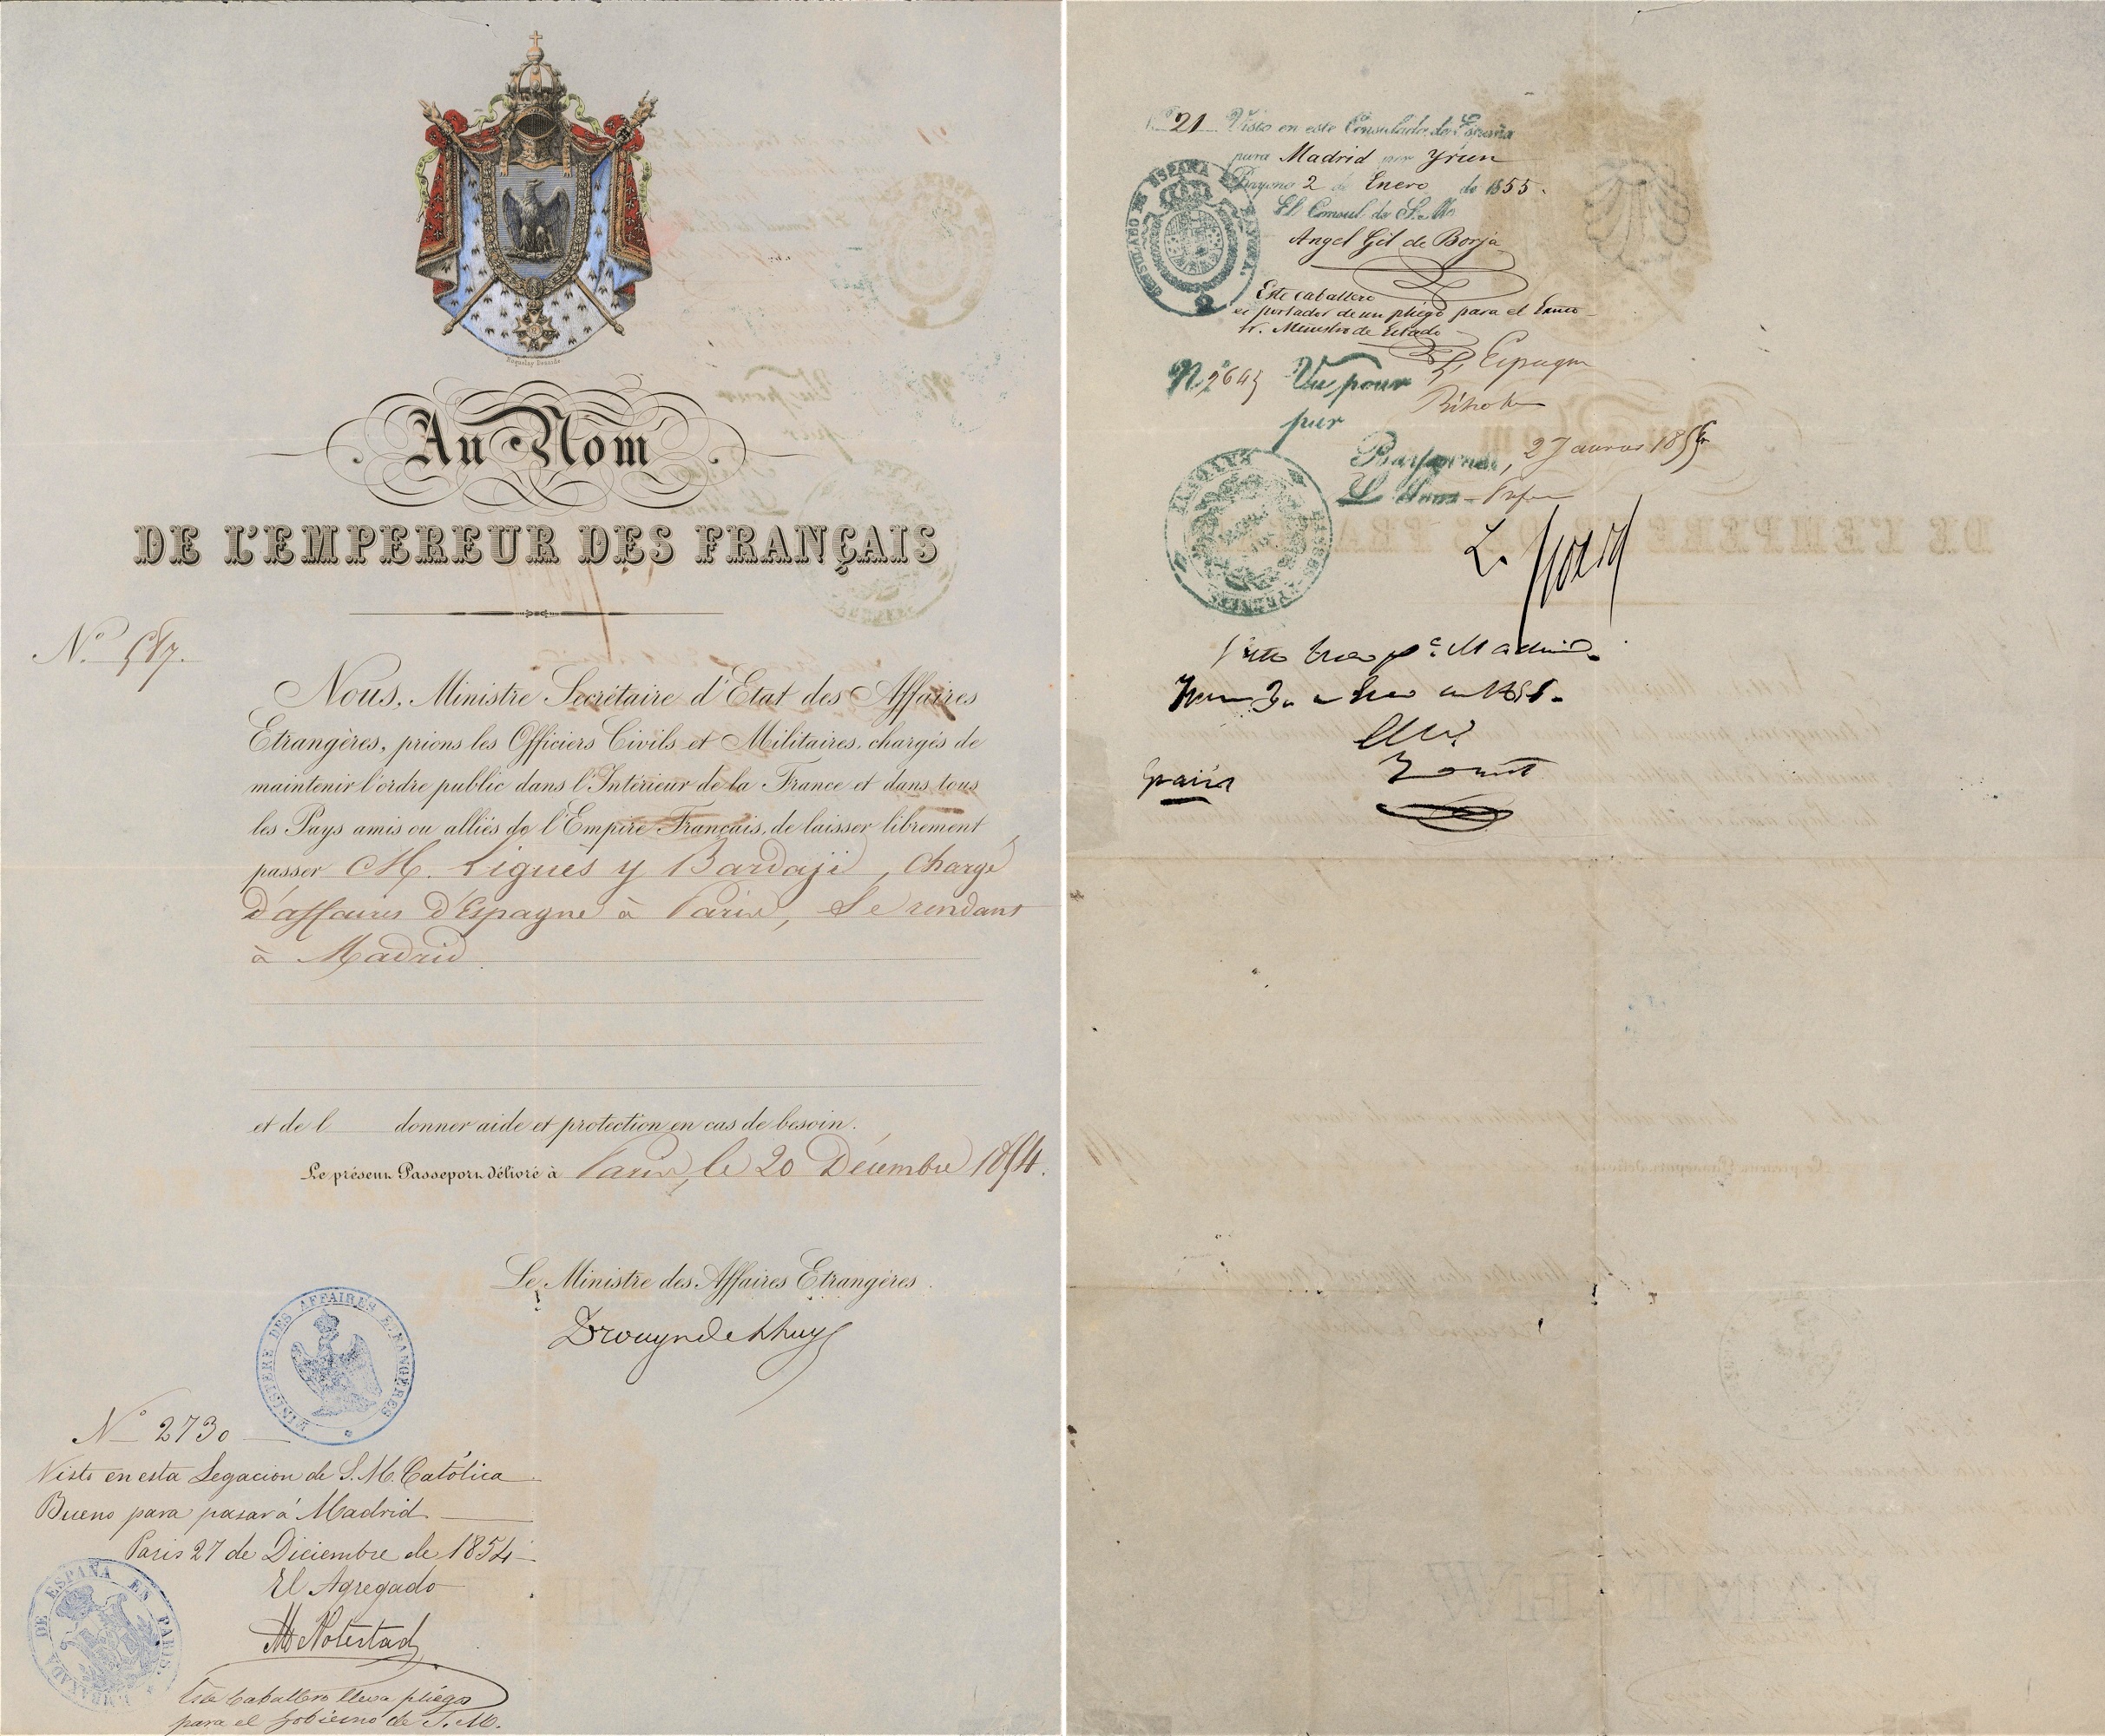 Au Nom
DE L'EMPEREUR DES FRANÇAIS
N.º 587.
Nous, Ministre Secrétaire d'Etat des Affaires
Etrangères, prions les Officiers Civils et Militaires, chargés de
maintenir l'ordre public dans l'Intérieur de la France et dans tous
les Pays amis ou alliés de l'Empire Français, de laisser librement
passer M. Ligués y Bardaji, chargé
d'affaires d'Espagne à Paris, se rendant
à Madrid
et de l donner aide et protection en cas de besoin.
Le présent Passeport délivré à Paris, le 20 Décembre 1854.
Le Ministre des Affaires Etrangères.
Drouyn de Lhuys
MINISTERE DES AFFAIRES ETRANGERES
Nº 2730
Visto en esta Legacion de S. M. Católica
Bueno para pasar á Madrid.
Paris 27 de Diciembre de 1854
El Agregado
EMBAXADA DE ESPAÑA EN PARIS
Este Caballero lleva pliegos
para el Gobierno de S. M.
Nº 21 Visto en este Consulado de España
para Madrid por Yrun
Bayona 2 de Enero de 1855.
El Consul de S. M.
Angel Gil de Borja
CONSULADO DE ESPAÑA BAYONA
Este caballero
es portador de un pliego para el Exmo
Sr. Ministro de Estado
Nº Vu pour L'Espagne
par
Bayonne, 2 Janvier 1855
Le Sous-Préfet
Madrid.